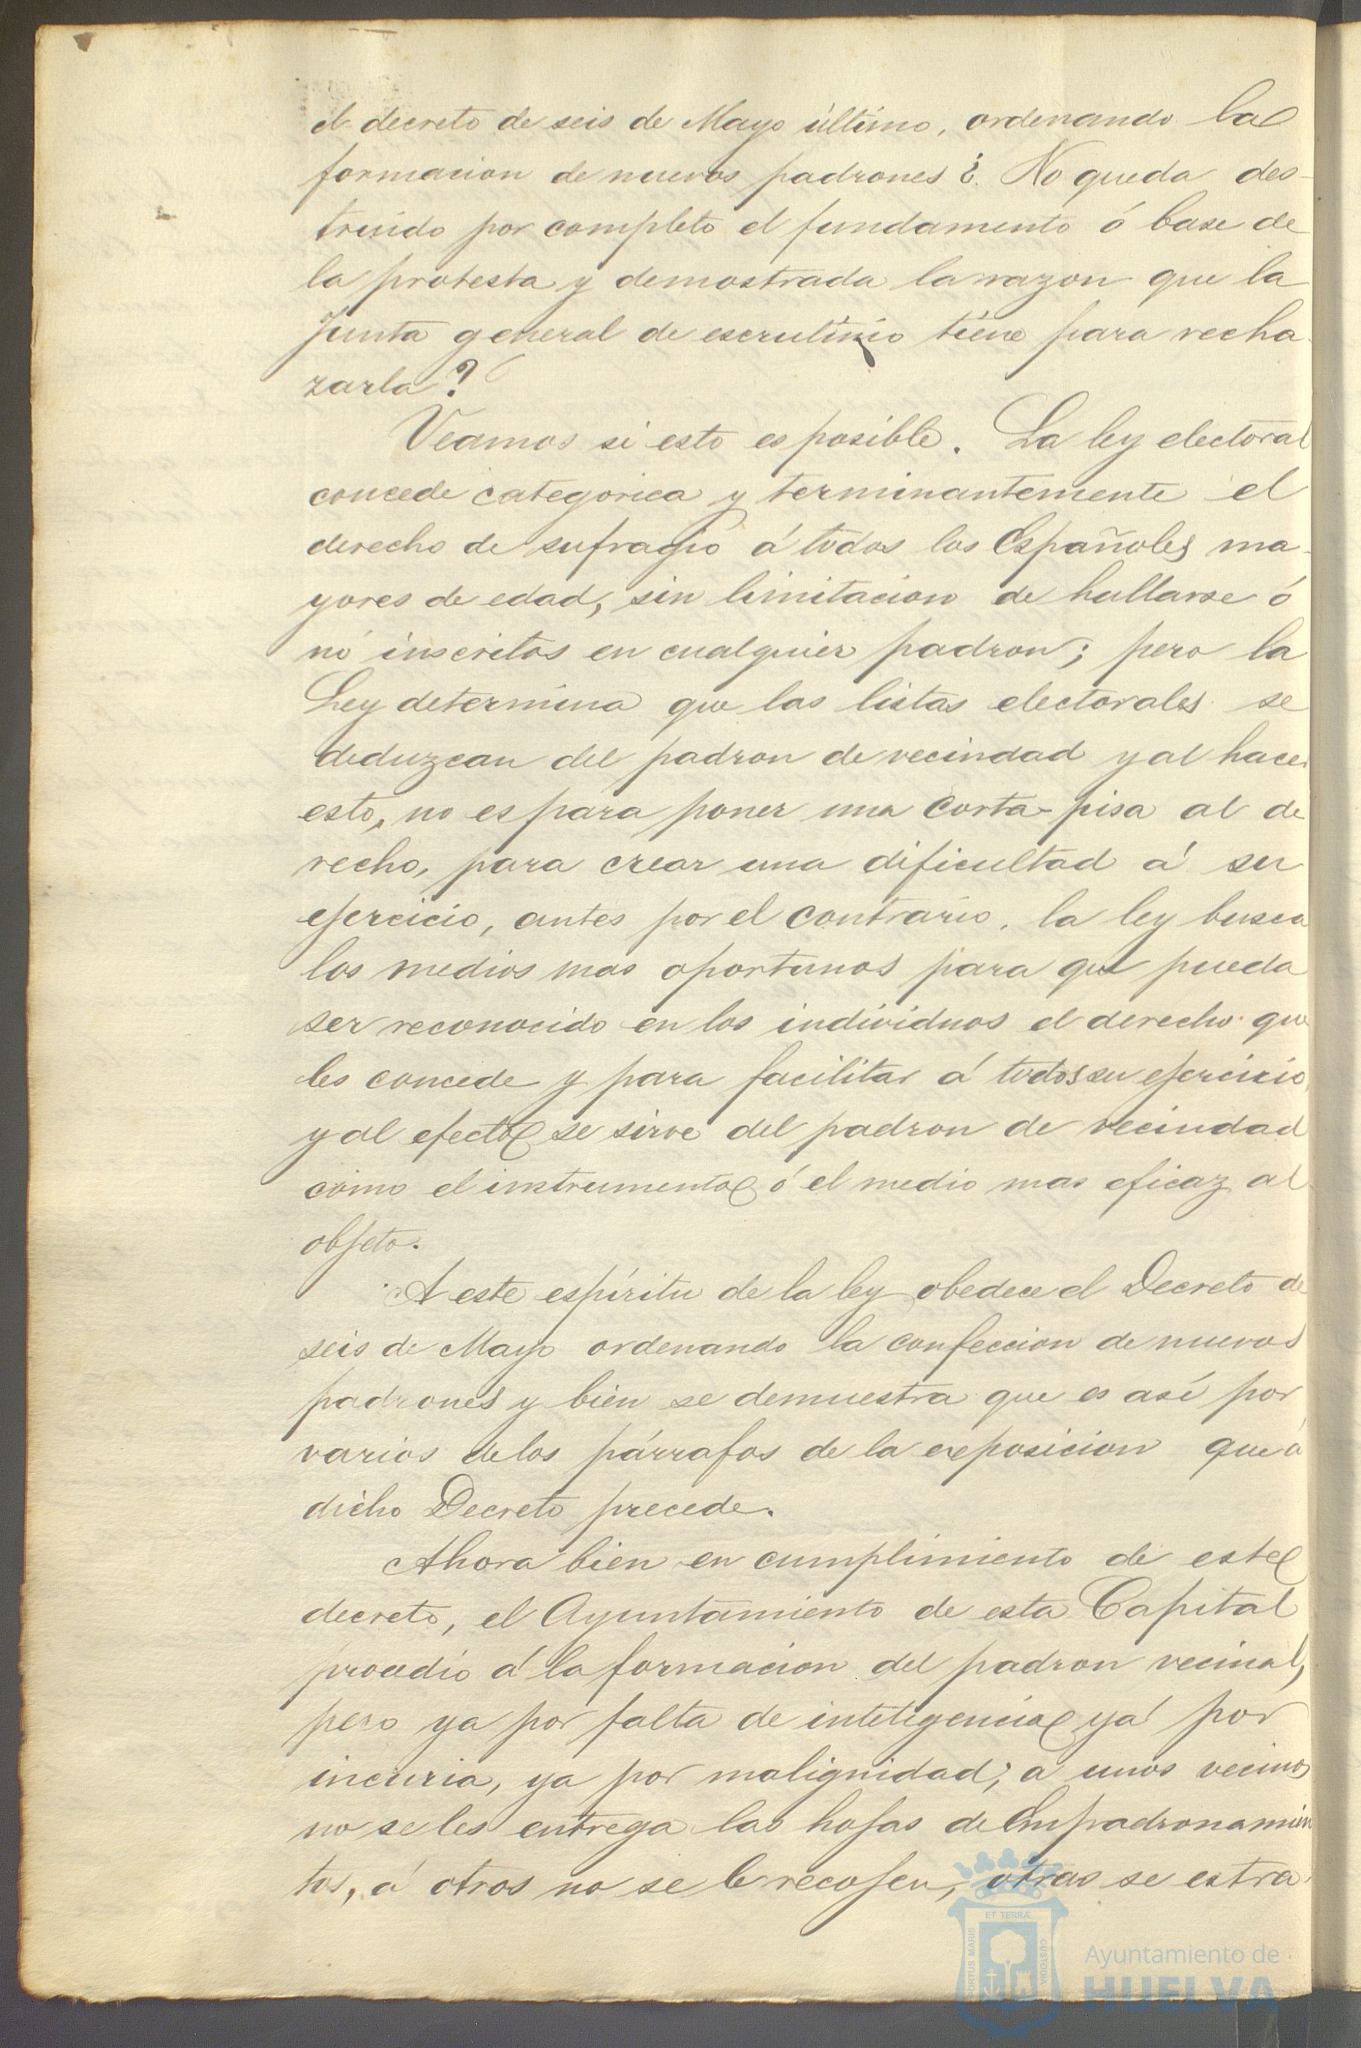 el decreto de seis de Mayo último, ordenando la
formacion de nuevos padrones? ¿. No queda des-
truido por completo el fundamento ó base de
la protesta y demostrada la razon que la
Junta general de escrutinio tiene para recha-
zarla?
Veamos si esto es posible. La ley electoral
concede categorica y terminantemente el
derecho de sufragio á todos los Españoles ma-
yores de edad, sin limitacion de hallarse ó
nó inscritos en cualquier padron; pero la
Ley determina que las listas electorales se
deduzcan del padron de vecindad y al hacer
esto, no es para poner una corta-pisa al de
recho, para crear una dificultad á su
ejercicio, antes por el contrario, la ley busca
los medios mas oportunos para que pueda
ser reconocido en los individuos el derecho que
les concede y para facilitar á todos su ejercicio,
y al efecto se sirve del padron de vecindad
como el instrumento ó el medio mas eficaz al
objeto.
A este espíritu de la ley obedece el Decreto de
seis de Mayo ordenando la confeccion de nuevos
padrones y bien se demuestra que es así por
varios de los párrafos de la exposicion que á
dicho Decreto precede.
Ahora bien en cumplimiento de este
decreto, el Ayuntamiento de esta Capital
procedió á la formacion del padron vecinal,
pero ya por falta de inteligencia, ya por
incuria, ya por malignidad; á unos vecinos
no se les entrega las hojas de Empadronamien
tos, á otros no se le recojen, otras se estra-
ET TERRÆ
PORTUS MARIS
CUSTODIA
Ayuntamiento de
HUELVA